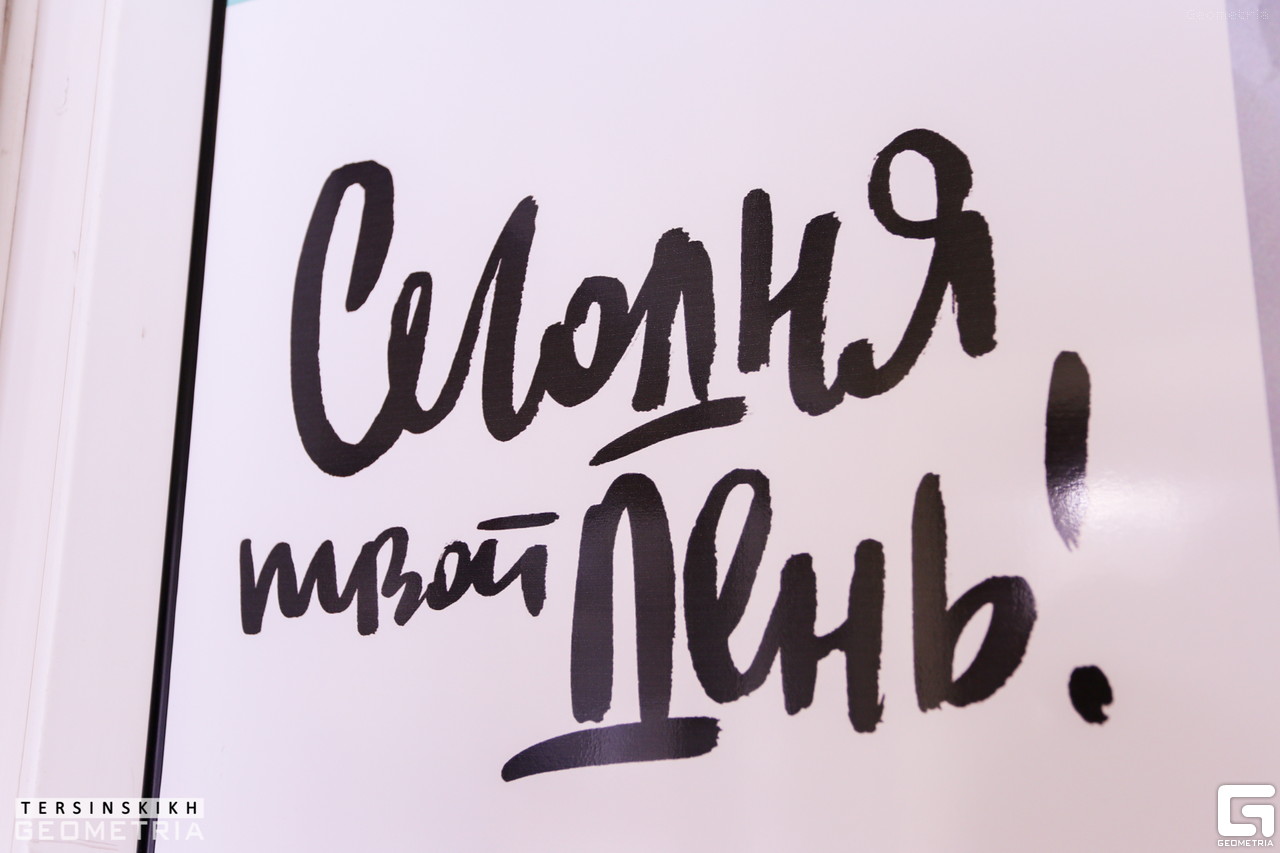 Сегодня
твой день!
TERSINSKIKH
GEOMETRIA
GEOMETRIA